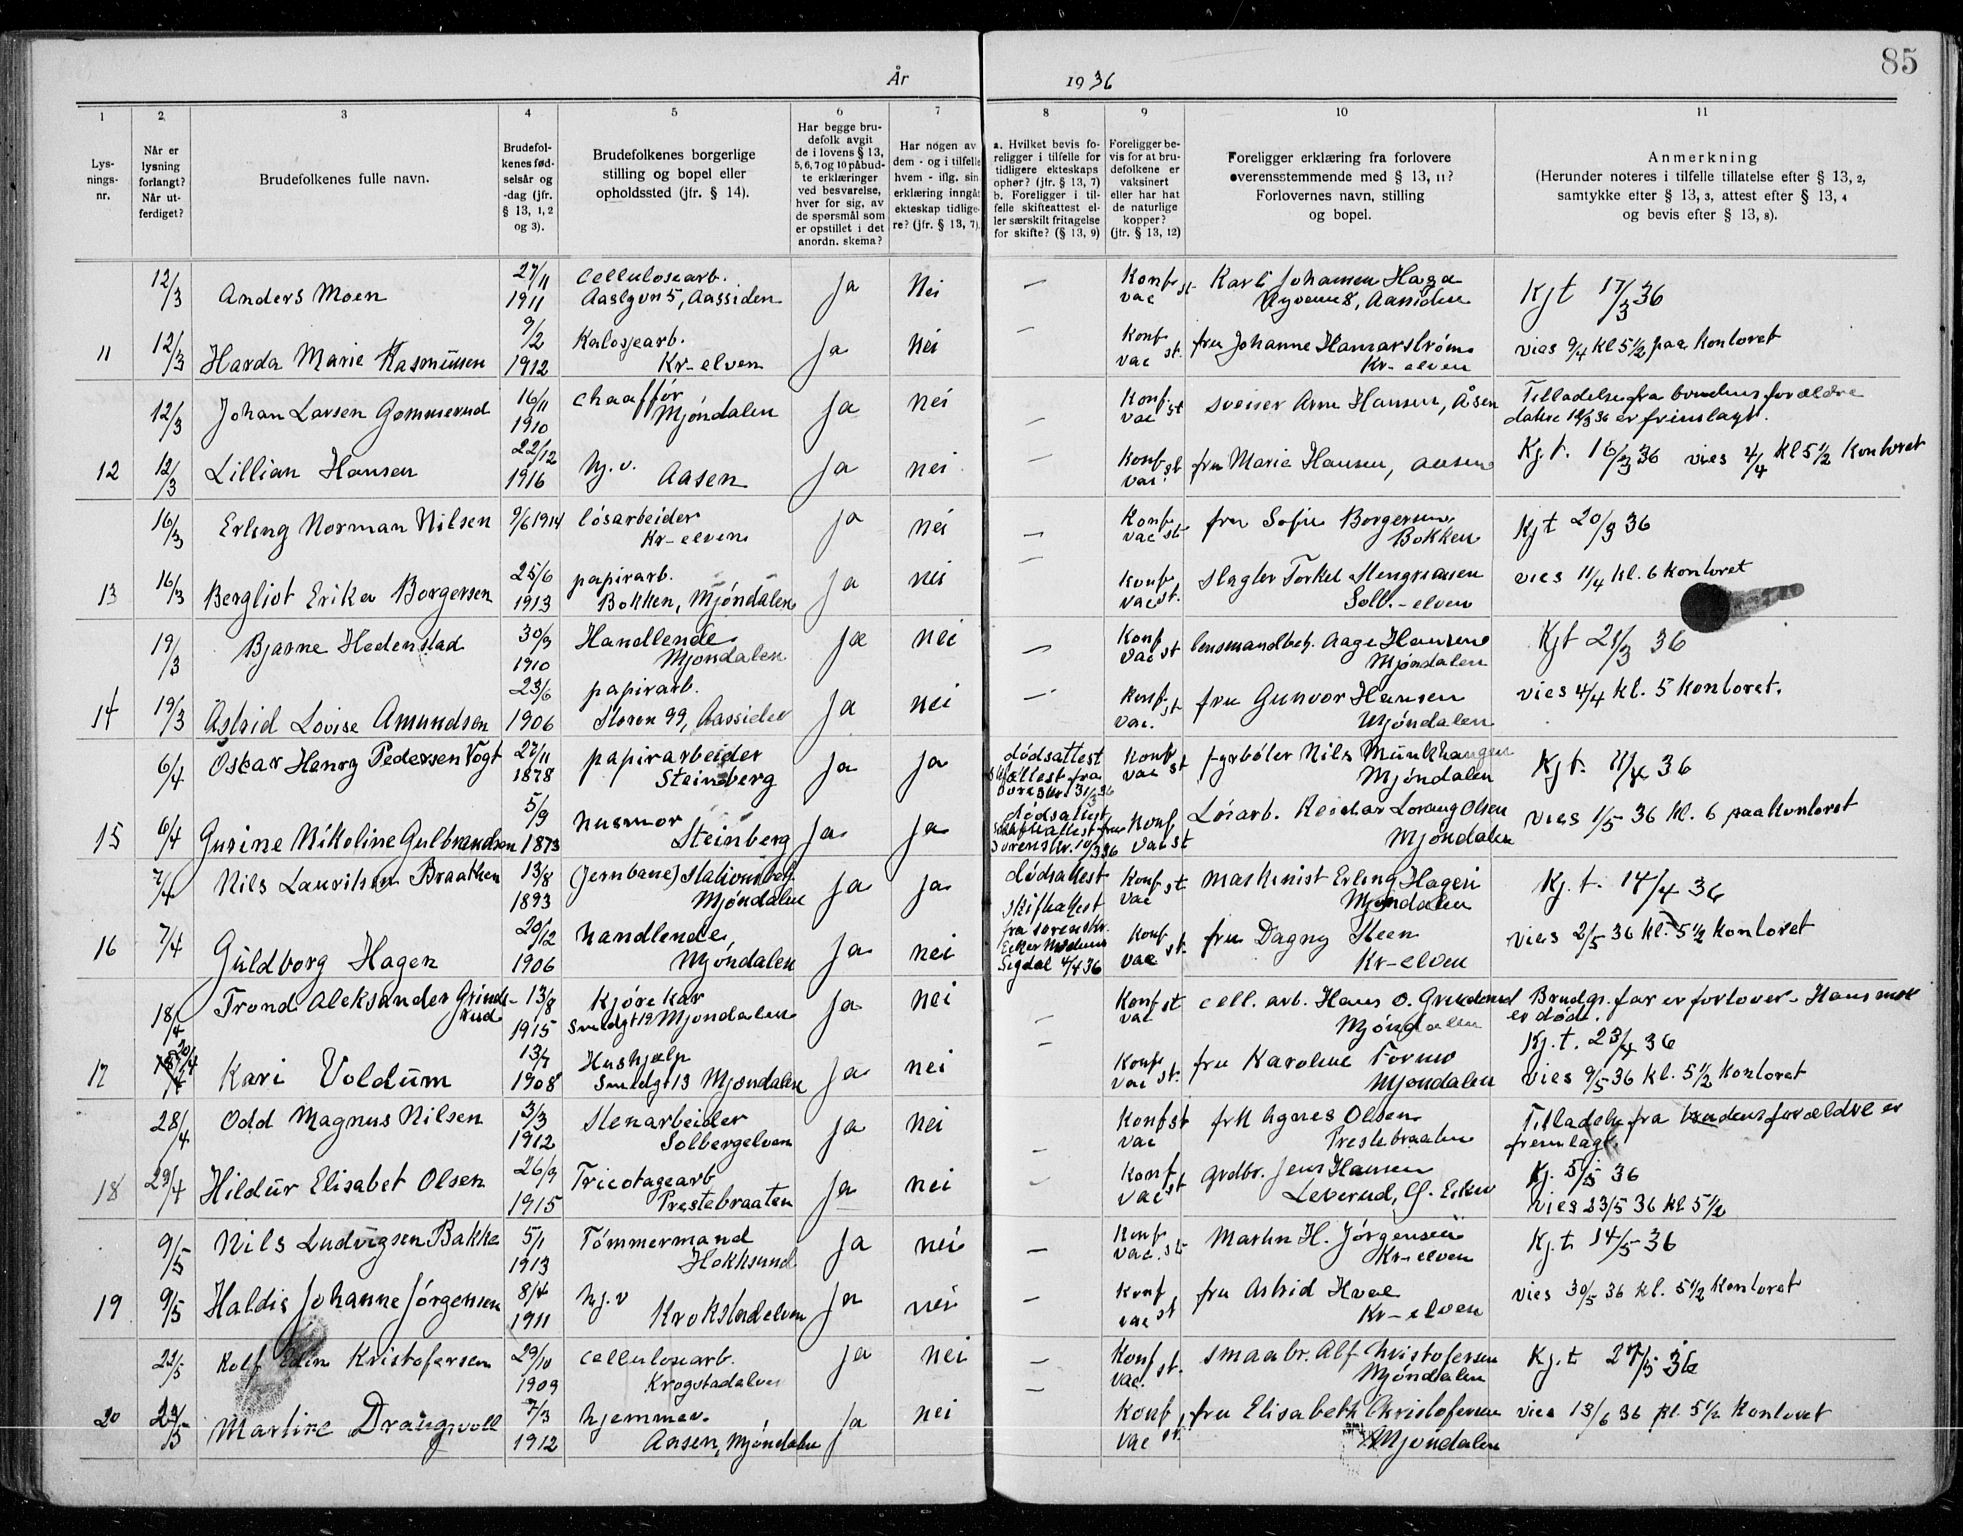 85
År 1936
1 2 3 4 5 6 7 8 9 10 11
Lys-
nings-
nr.
Når er
lysning
forlangt?
Når ut-
ferdiget?
Brudefolkenes fulle navn.
Brudefol-
kenes fød-
selsår og
-dag (jfr.
§ 13, 1, 2
og 3).
Brudefolkenes borgerlige
stilling og bopel eller
opholdssted (jfr. § 14).
Har begge bru-
defolk avgit
de i lovens § 13,
5, 6, 7 og 10 påbud-
te erklæringer
ved besvarelse,
hver for sig, av
de spørsmål som
er opstillet i det
anordn. skema?
Har nogen av
dem - og i tilfelle
hvem - iflg. sin
erklæring inngåt
ekteskap tidlige-
re? (jfr. § 13, 7).
a. Hvilket bevis fo-
religger i tilfelle for
tidligere ekteskaps
ophør? (jfr. § 13, 7)
b. Foreligger i til-
felle skifteattest el-
ler særskilt fritagelse
for skifte? (§ 13, 9)
Foreligger be-
vis for at bru-
defolkene er
vaksinert
eller har hat
de naturlige
kopper?
(jfr. § 13, 12)
Foreligger erklæring fra forlovere
overensstemmende med § 13, 11?
Forlovernes navn, stilling
og bopel.
Anmerkning
(Herunder noteres i tilfelle tillatelse efter § 13, 2,
samtykke efter § 13, 3, attest efter § 13, 4
og bevis efter § 13, 8).
12/3 Anders Moen 27/11 1911 cellulosearb. Ja Nei — Konf st Karl Johansen Haga Kjt 17/3 36
Aaslgvn 5, Aassiden vac Aassiden
11 12/3 Harda Marie Rasmussen 9/2 1912 Kalosjearb. Ja nei — Konf st. fru Johanne Hamarstrøm vies 9/4 kl 5½ paa kontoret
Kr-elven vac Kr-elven
12/3 Johan Larsen Gommerud 16/11 1910 chaaffør Ja nei — Konf st sveiser Arne Hansen, Åsen Tilladelse fra brudens forældre
Mjøndalen vac datert 12/3 36 er fremlagt.
12 12/3 Lillian Hansen 22/12 1916 hj.v. Aasen Ja nei — Konf st vac. fru Marie Hansen, Aasen Kj.t. 16/3 36 vies 4/4 kl 5½ kontoret
16/3 Erling Norman Nilsen 9/6 1914 løsarbeider Ja nei — Konf st. fru Sofie Borgersen Kjt 20/3 36
Kr-elven vac Bokken
13 16/3 Bergliot Erika Borgersen 25/6 1913 papirarb. Ja nei — Konf st. slagter Torkel vies 11/4 kl. 6 kontoret
Bokken, Mjøndalen vac Solb.-elven
19/3 Bjarne Hedenstad 30/3 1910 Handlende Ja nei — Konf st lensmandbetj. Aage Hansen Kjt 21/3 36
Mjøndalen vac Mjøndalen
14 19/3 Astrid Lovise Amundsen 23/6 1906 papirarb. Ja nei — Konf. st fru Gunvor Hansen vies 4/4 kl. 5 kontoret.
Storen 99, Aassiden vac. Mjøndalen
6/4 Oskar Henry Pedersen Vogt 27/11 1878 papirarbeider Ja Ja dødsattest Konf st fyrbøter Nils Munkhaugen Kjt. 11/4 36
Steinberg vac Mjøndalen
15 6/4 Gurine Nikoline Gulbrandsen 5/9 1873 husmor Ja Ja dødsattest Konf st Løsarb. Reidar Lorang Olsen vies 1/5 36 kl. 6 paa kontoret
Steinberg vac Mjøndalen
7/4 Nils Lauritsen Braathen 13/8 1893 (Jernbane) Stationsbetj. Ja Ja dødsattest Konf st maskinist Erling Hagen Kj.t. 14/4 36
Mjøndalen skifteatest vac Mjøndalen
16 7/4 Guldborg Hagen 20/12 1906 handlende Ja nei fra sorenskr. Konf st. fru Dagny Steen vies 2/5 36 kl. 5½ kontoret
Mjøndalen Eiker Modum vac Kr-elven
Sigdal 4/4 36
18/4 Trond Aleksander Grinde- 13/8 1915 Kjørekar Ja nei — Konf st cell. arb. Hans O. Brudgs. far er forlover - Hans mor
rud Mjøndalen vac Mjøndalen er død.
Kj.t. 23/4 36
17 20/4 Kari Voldum 13/7 1908 Hushjelp Ja nei — Konf st. fru Karoline vies 9/5 36 kl. 5½ kontoret
Smedgt 13 Mjøndalen vac Mjøndalen
28/4 Odd Magnus Nilsen 3/3 1912 Stenarbeider Ja nei — Konf st frk Agnes Olsen Tilladelse fra brudens forældre er
Solbergelven vac Prestebraaten fremlagt
18 29/4 Hildur Elisabet Olsen 26/9 1915 Tricotagearb Ja nei — Konf st grdbr. Jens Hansen Kj. 5/5 36
Prestebraaten vac Leverud, Eiker vies 23/5 36 kl 5½
9/5 Nils Ludvigsen Bakke 5/1 1913 Tømmermand Ja nei — Konf st Martin H. Jørgensen Kj.t 14/5 36
Hokksund vac. Kr-elven
19 9/5 Haldis Johanne Jørgensen 8/4 1911 hj.v Ja nei — Konf st fru Astrid Hval vies 30/5 36 kl. 5½ kontoret
Krokstadelven vac Kr-elven
22/5 Rolf Kristofersen 29/10 1909 cellulosearb. Ja nei — Konf st. smaabr. Alf Christofersen Kj.t 27/5 36
Krogstadelven vac. Mjøndalen
20 Martine Drangvoll 7/3 1912 hjemmev. Ja nei — Konf st. fru Elisabeth Christofersen vies 13/6 36 kl. 5½ kontoret
Aasen, Mjøndalen vac Mjøndalen